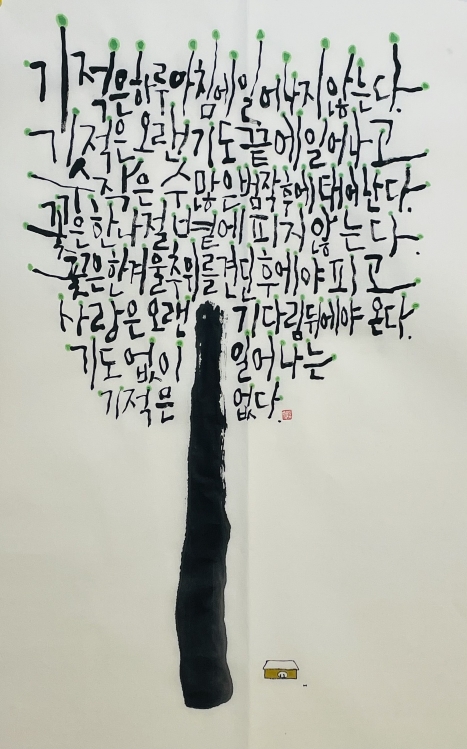 기적은 하루아침에 일어나지 않는다.
기적은 오랜 기도 끝에 일어나고
수작은 수많은 범작 후에 태어난다.
꽃은 한나절 볕에 피지 않는다.
꽃은 한겨울 추위를 견딘 후에야 피고
사랑은 오랜 기다림 뒤에야 온다.
기도 없이 일어나는
기적은 없다.